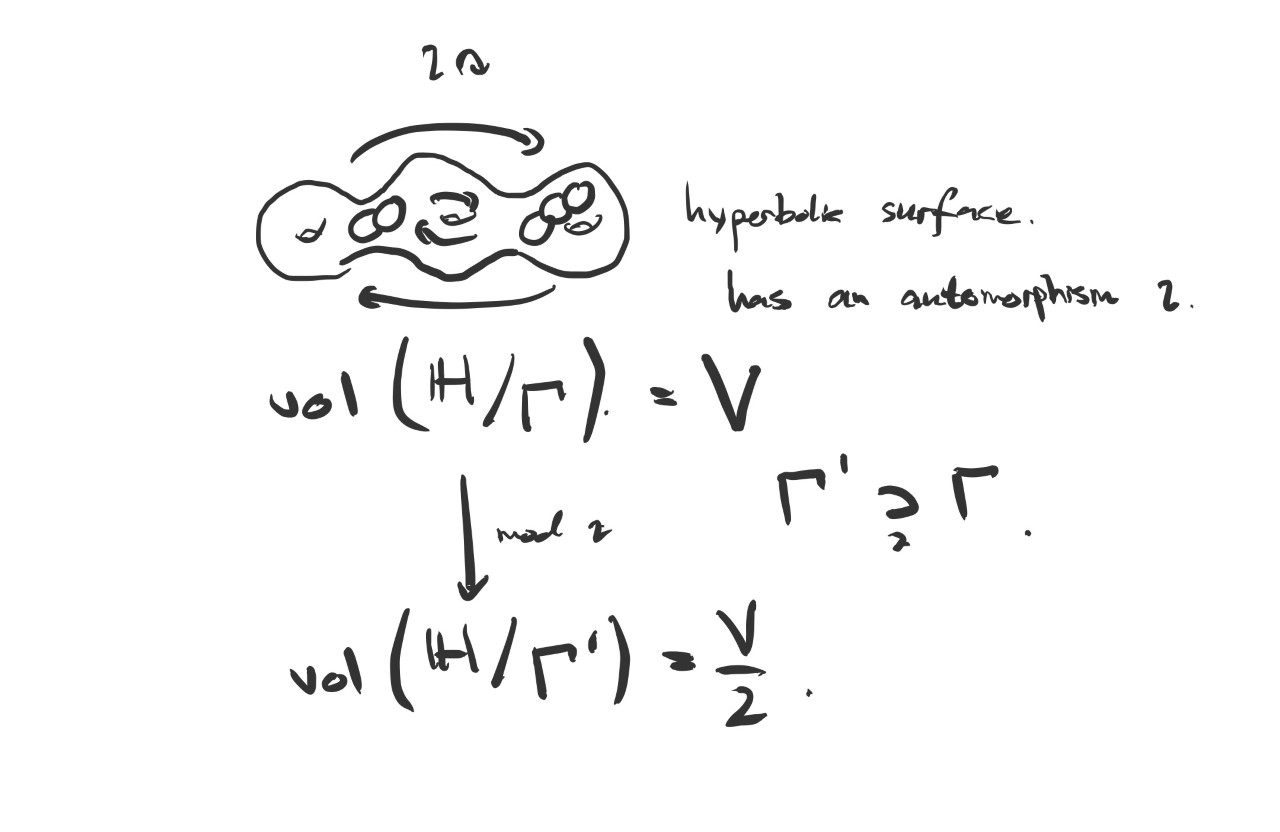 2
hyperbolic surface.
has an automorphism 2.
vol (ℍ/Γ). = V
Γ' ⊋ Γ.
2
mod 2
vol (ℍ/Γ') = V/2.